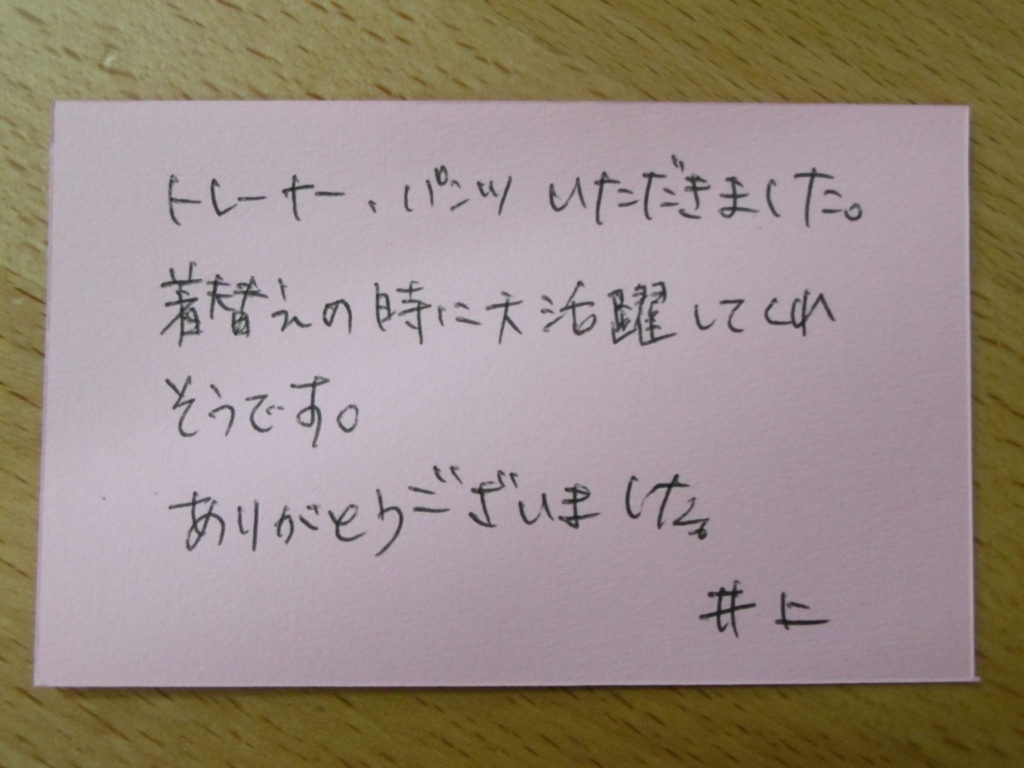 トレーナー、パンツ いただきました。
着替えの時に大活躍してくれ
そうです。
ありがとうございました。
井上